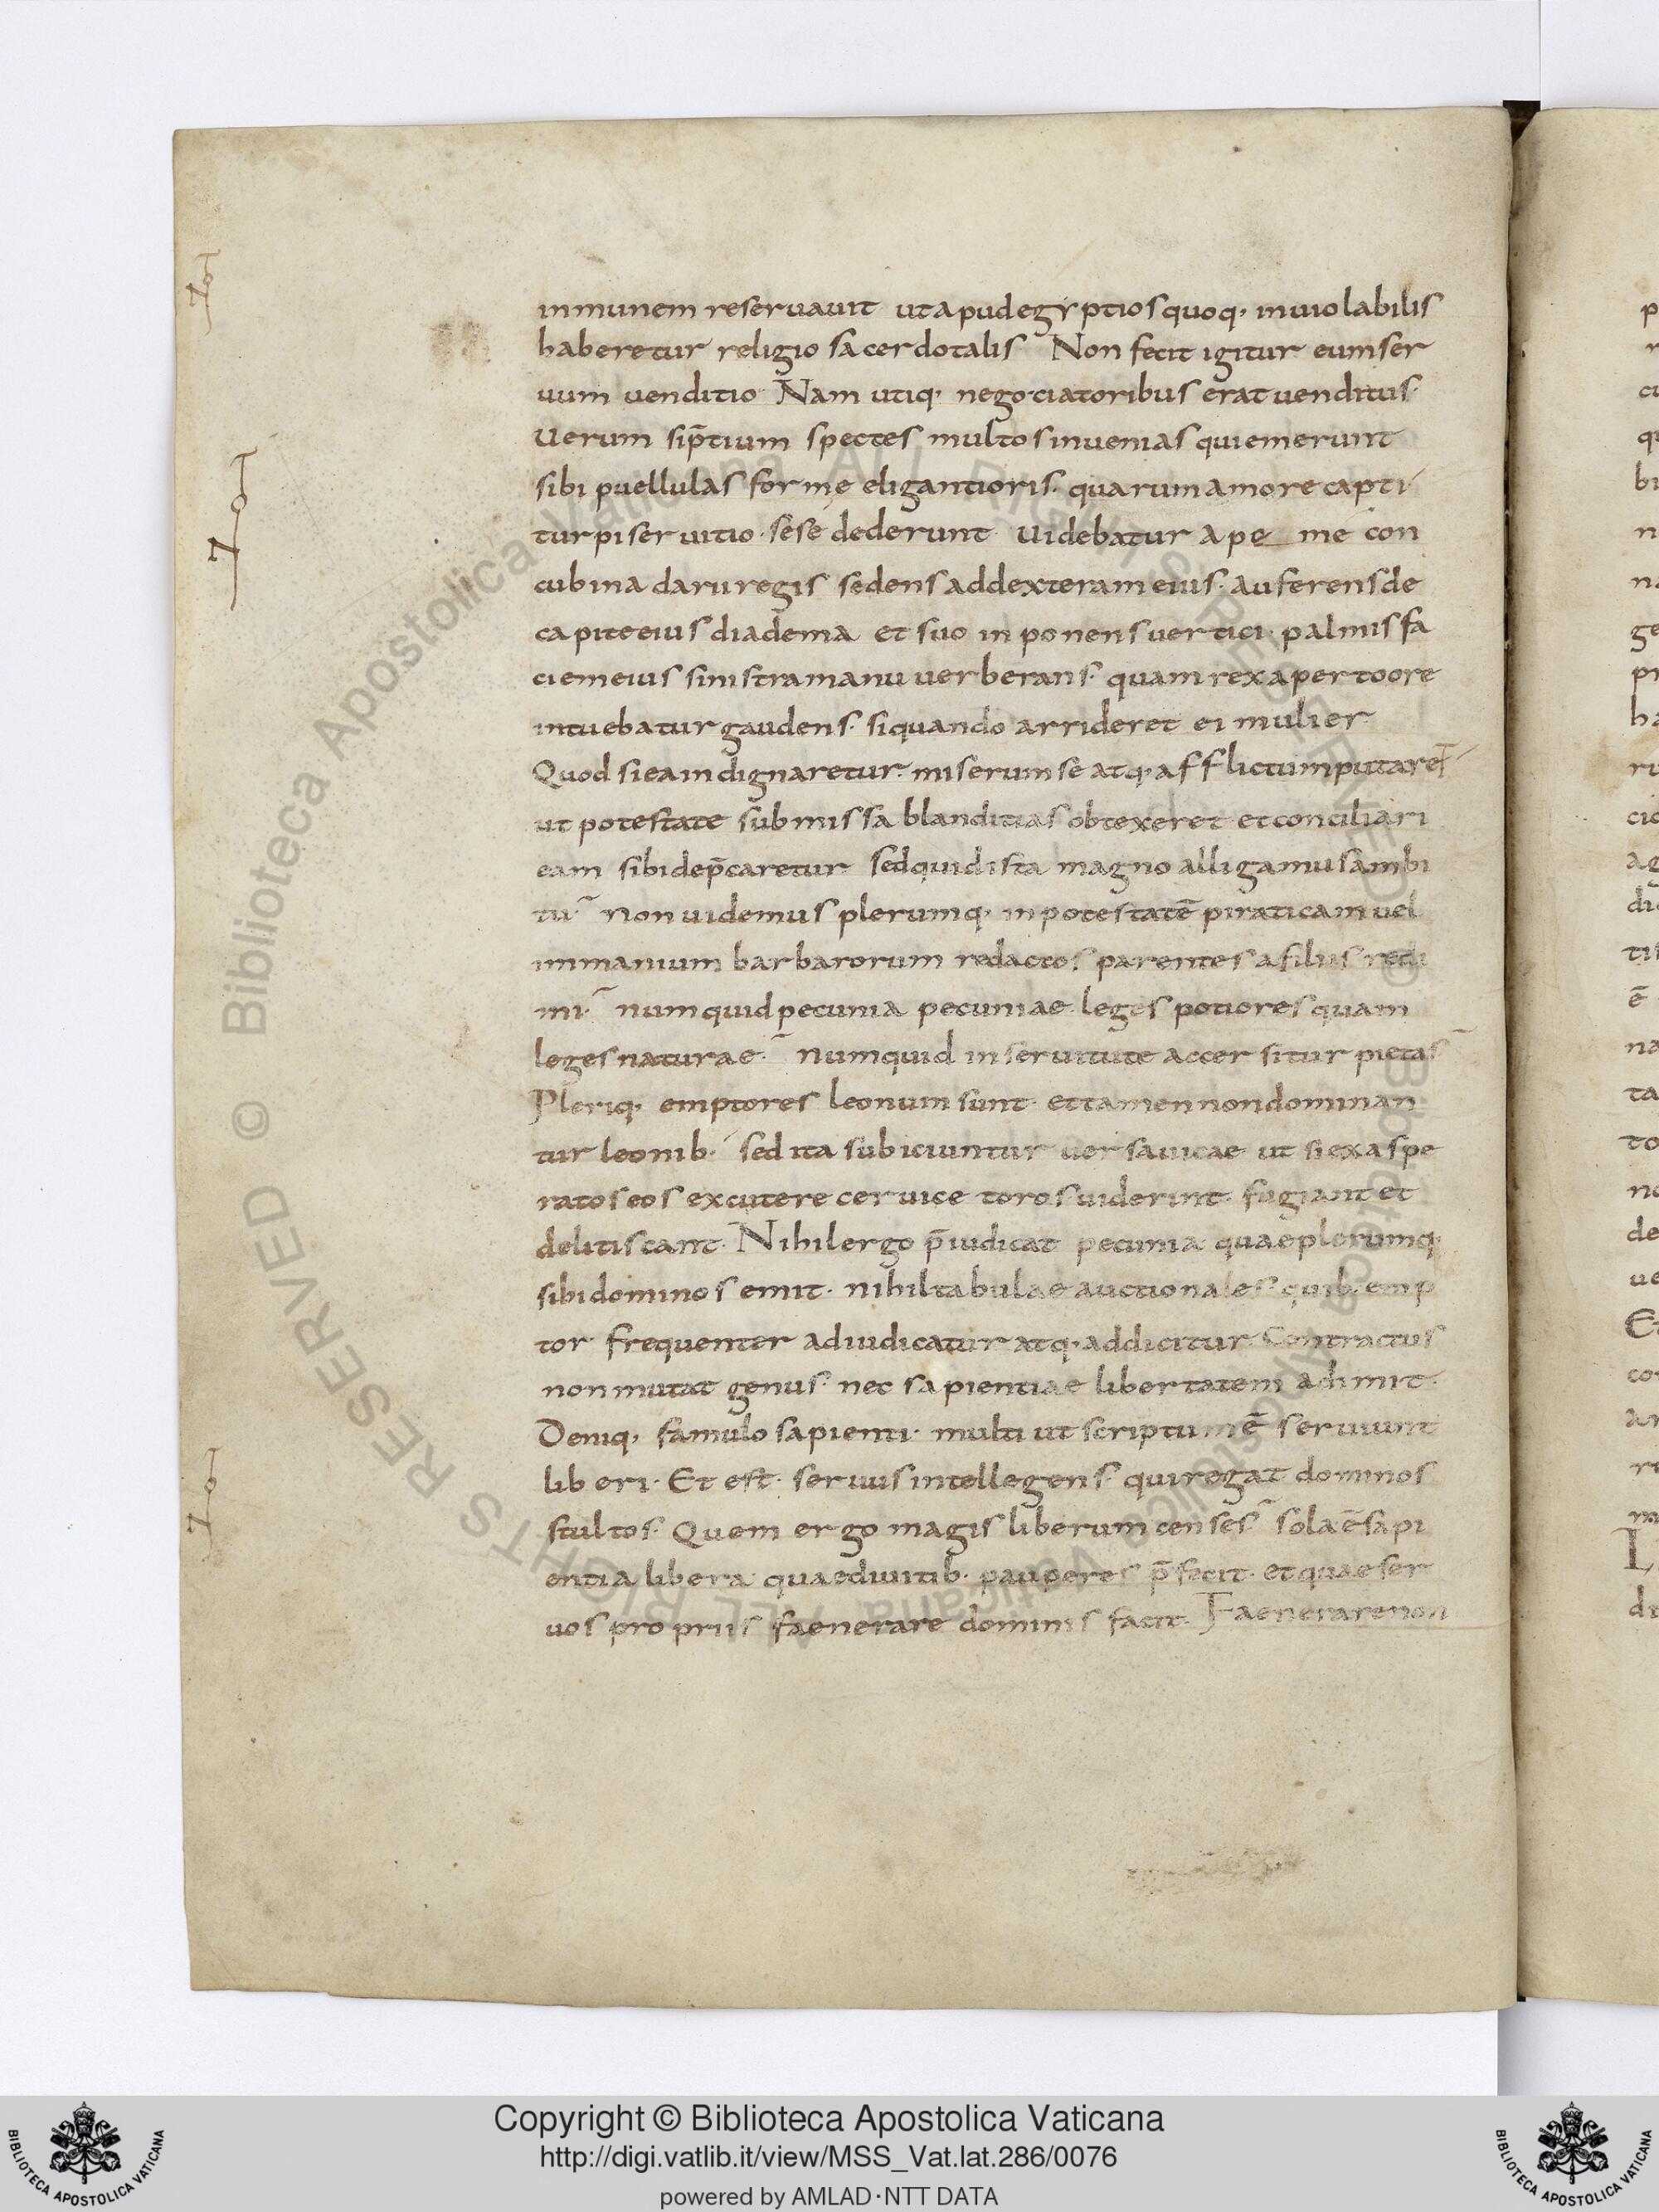 inmunem reseruauit ut apud egyptios quoq; inuiolabilis
haberetur religio sacerdotalis Non fecit igitur eum ser
uum uenditio· Nam utiq; negociatoribus erat uenditus·
Uerum si p̄tium spectes multos inuenias qui emerunt
sibi puellulas forme eligantioris· quarum amore capti
turpi seruitio· sese dederunt· Uidebatur ape me con
cubina darii regis sedens ad dexteram eius· auferens de
capite eius diadema et suo inponens uertici· palmis fa
ciem eius sinistra manu uerberans· quam rex aperto ore
intuebatur gaudens· si quando arrideret ei mulier
Quod si ea indignaretur· miserum se atq; afflictum putaret
ut potestate submissa blanditias obtexeret et conciliari
eam sibi dep̄caretur sed quid ista magno alligamus ambi
tu· Non uidemus plerumq; in potestatē piraticam uel
immanium barbarorum redactos parentes a filiis redi
mi· numquid pecunia pecuniae leges potiores quam
leges naturae· Numquid in seruitute accersitur pietas
Pleriq; emptores leonum sunt· et tamen non dominan
tur leonib· sed ita subiciuntur uersa uicae ut si exaspe
ratos eos excutere ceruice toros uiderint· fugiant et
delitiscant· Nihil ergo p̄iudicat pecunia quae plerumq;
sibi dominos emit· nihil tabulae auctionales· quib· emp
tor frequenter adiudicatur atq; addicitur· Contractus
non mutat genus· nec sapientiae libertatem adimit·
Deniq; famulo sapienti· multi ut scriptum ē seruiunt
liberi· Et est· seruus intellegens· qui regat dominos
stultos· Quem ergo magis liberum censes· sola ē sapi
entia libera quae diuitib· pauperes p̄fecit· et quae ser
uos propriis faenerare dominis facit· Faenerare non
© Biblioteca Apostolica Vaticana ALL RIGHTS RESERVED
Copyright © Biblioteca Apostolica Vaticana
http://digi.vatlib.it/view/MSS_Vat.lat.286/0076
powered by AMLAD·NTT DATA
BIBLIOTECA APOSTOLICA VATICANA
BIBLIOTECA APOSTOLICA VATICANA